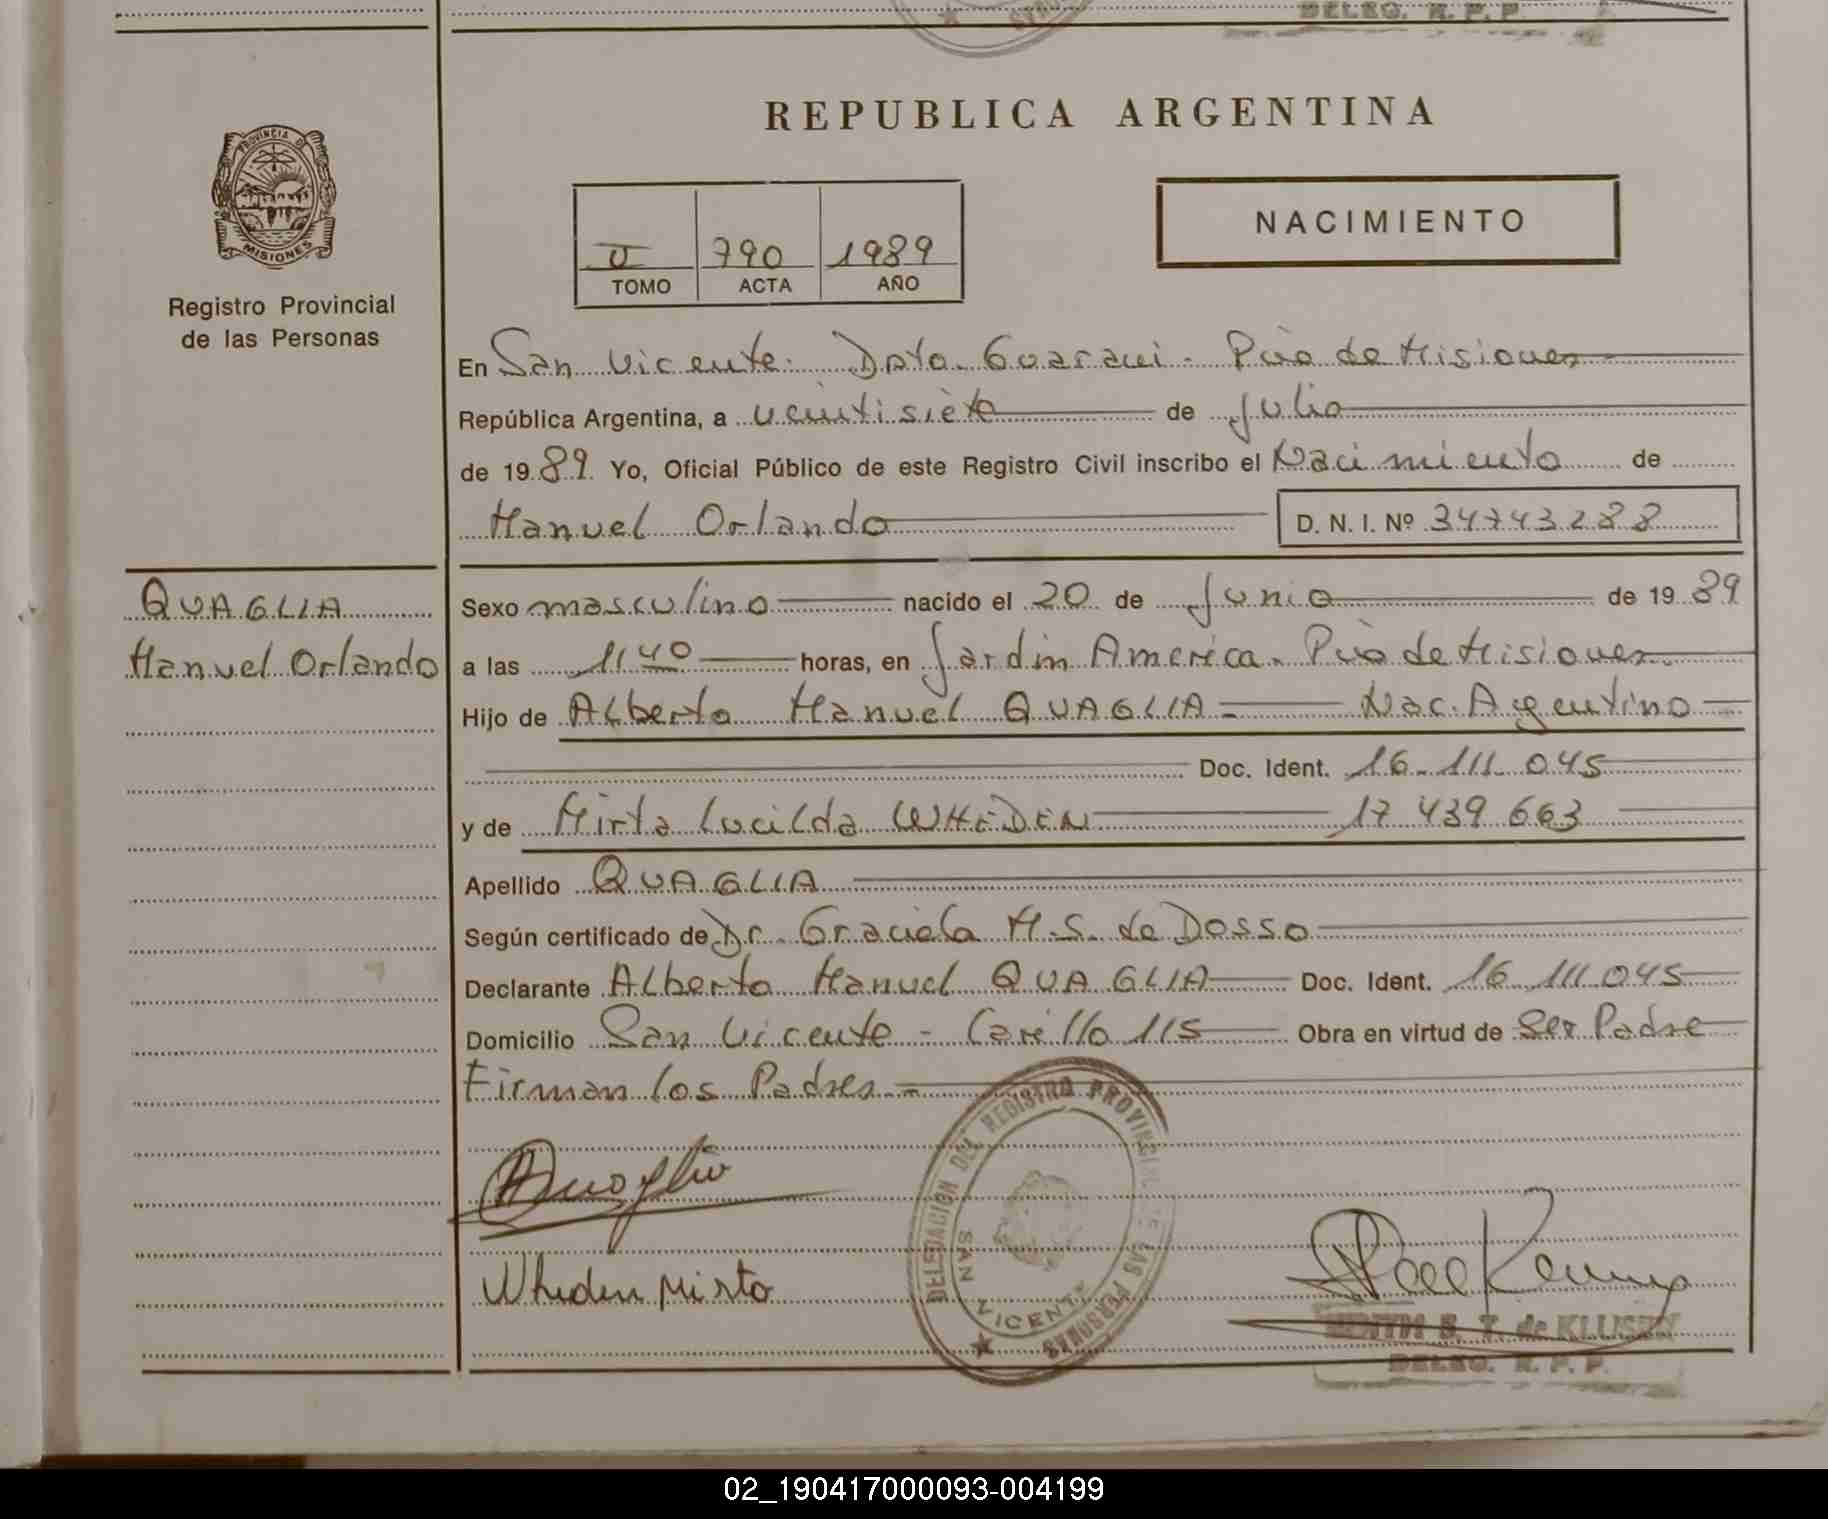 DELEG. R. P. P.
PROVINCIA DE
MISIONES
Registro Provincial
de las Personas
REPUBLICA ARGENTINA
NACIMIENTO
II 790 1989
TOMO ACTA AÑO
En San Vicente. Dpto. Guarani. Pcia de Misiones
República Argentina, a veintisiete de Julio
de 1989. Yo, Oficial Público de este Registro Civil inscribo el Nacimiento de
Manuel Orlando D. N. I. Nº 34743288
QUAGLIA
Manuel Orlando
Sexo masculino nacido el 20 de Junio de 1989
a las 11,40 horas, en Jardin America. Pcia de Misiones.
Hijo de Alberto Manuel QUAGLIA= Nac. Argentino
Doc. Ident. 16.111.045
y de Mirta Lucilda WHEDEN 17 439 663
Apellido QUAGLIA
Según certificado de Dr. Graciela M.S. de Dosso
Declarante Alberto Manuel QUAGLIA Doc. Ident. 16.111.045
Domicilio San Vicente - Carillo 115 Obra en virtud de Ser Padre
Firman los Padres.=
DELEGACION DEL REGISTRO PROVINCIAL DE LAS PERSONAS
SAN VICENTE
Wheden Mirta
T. de KLUSEN
DELEG. R. P. P.
02_190417000093-004199